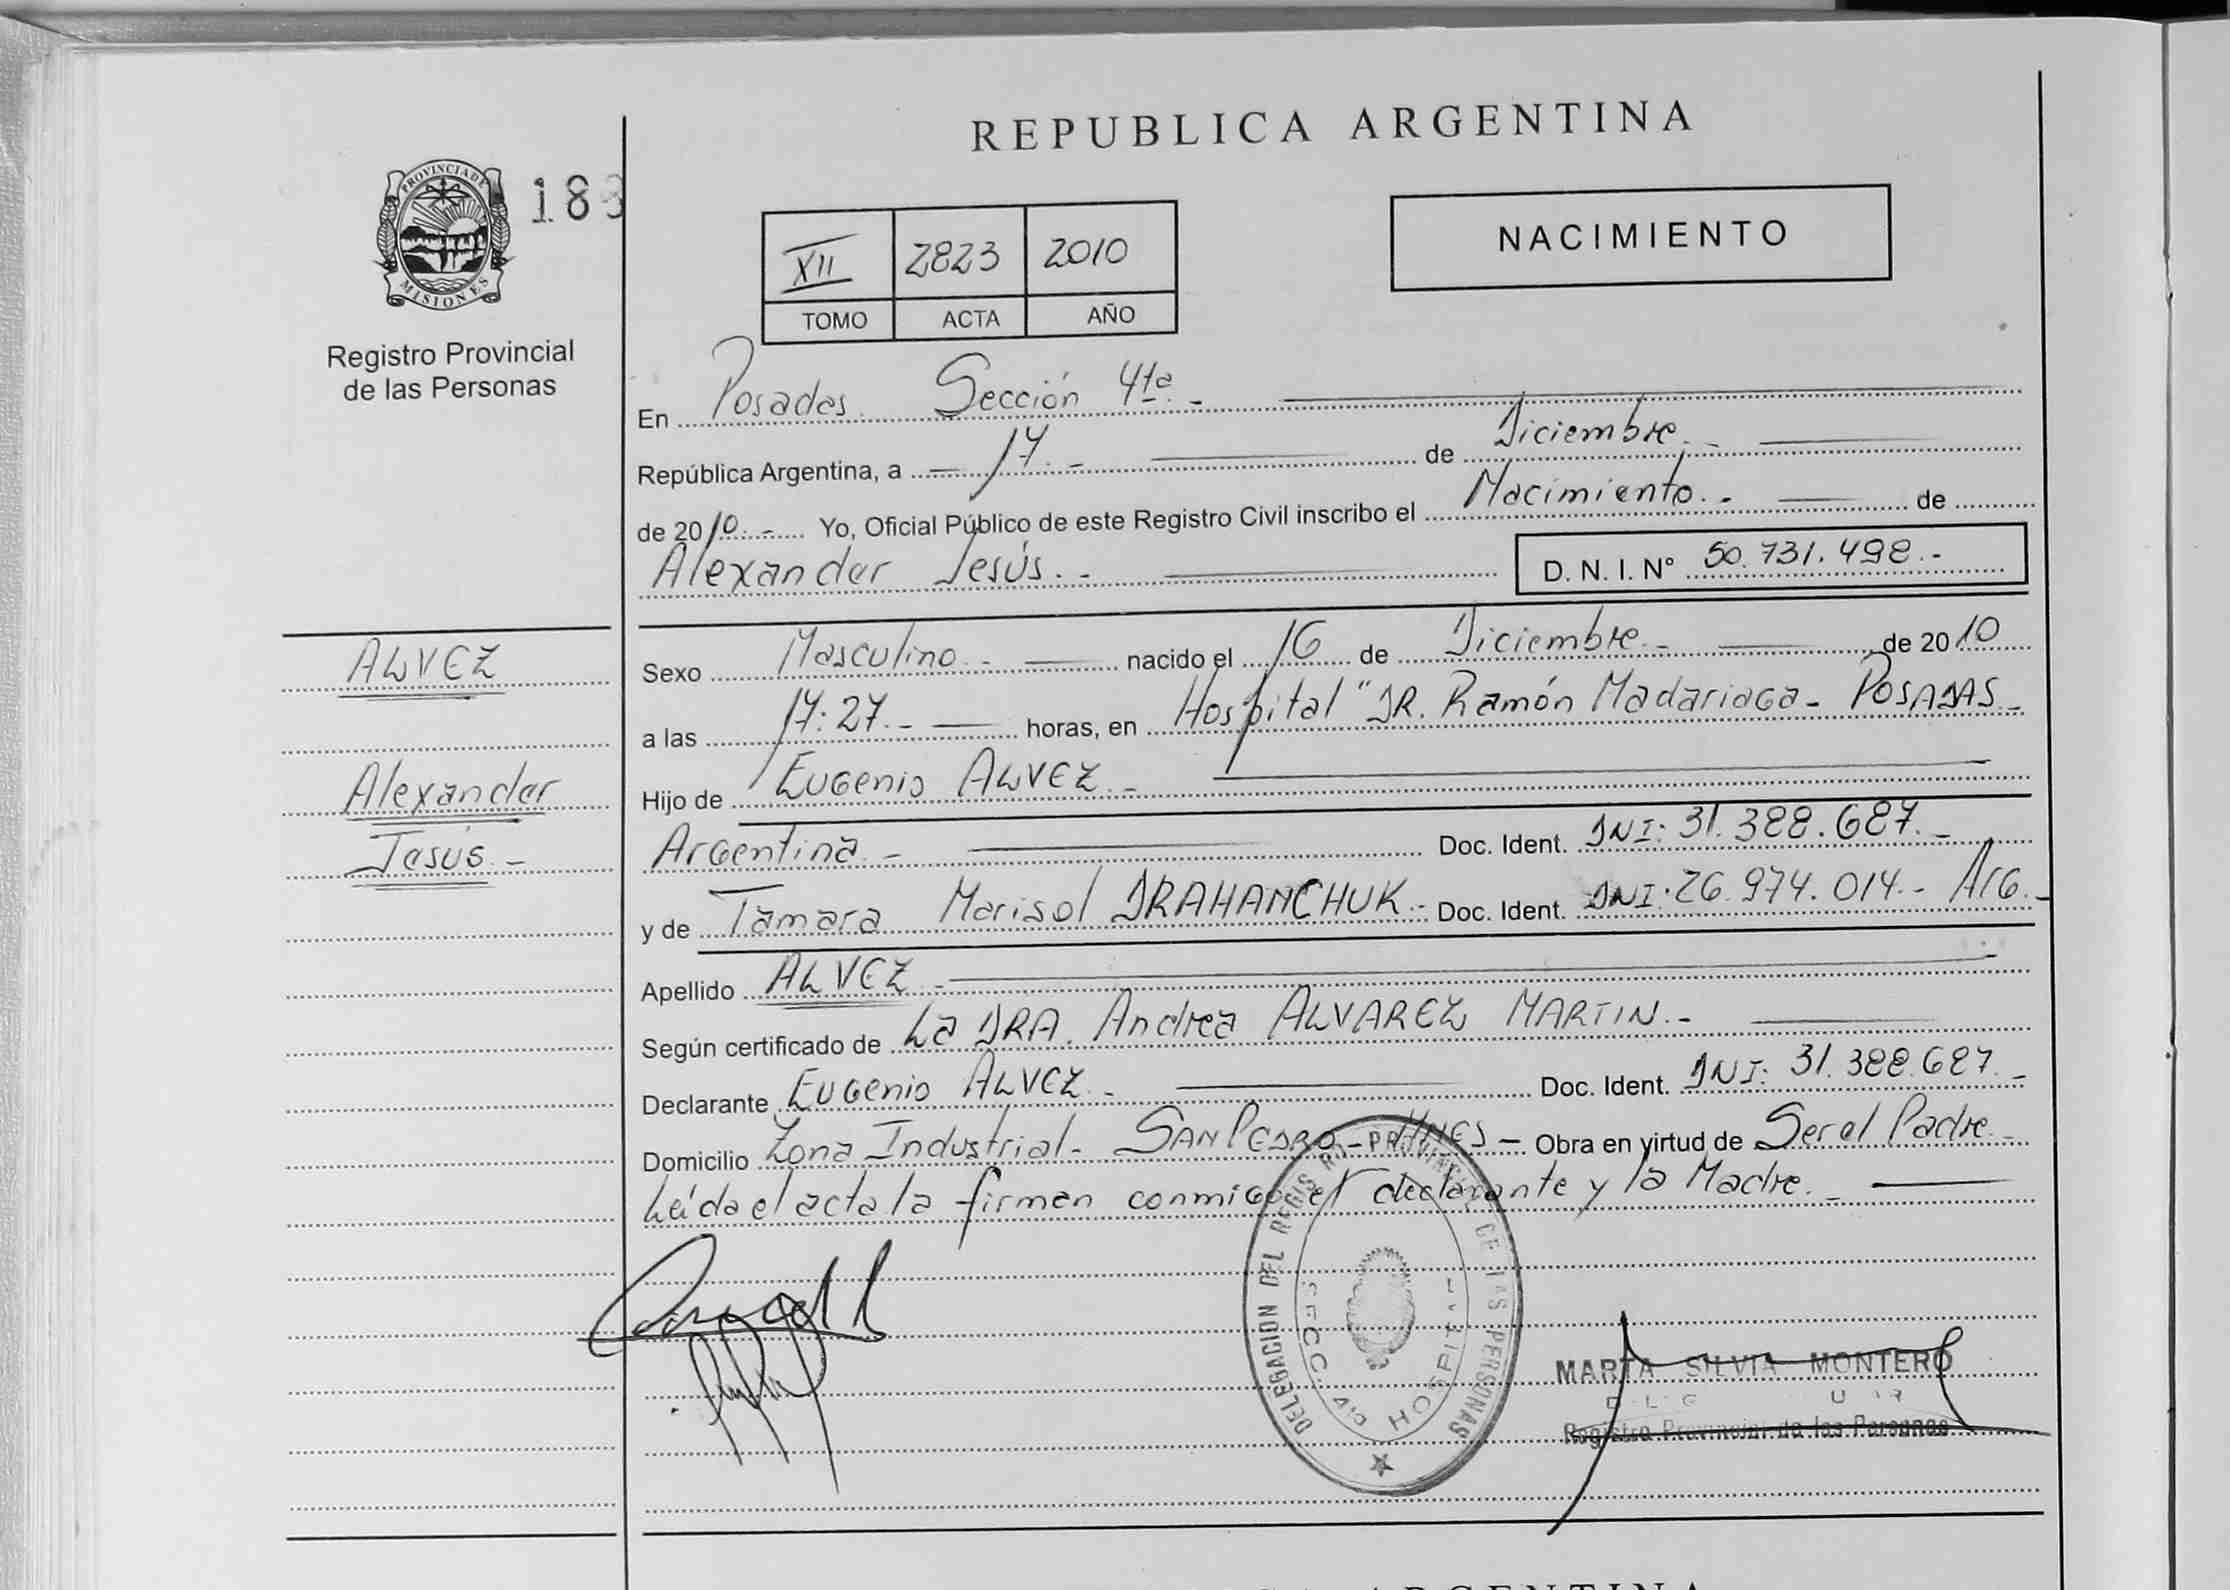 REPUBLICA ARGENTINA
PROVINCIA DE
MISIONES
188
Registro Provincial
de las Personas
XII 2823 2010
TOMO ACTA AÑO
NACIMIENTO
En Posadas Sección 4ta.-
República Argentina, a 17.- de Diciembre.-
de 2010.- Yo, Oficial Público de este Registro Civil inscribo el Nacimiento.- de
Alexander Jesús.- D. N. I. N° 50.731.498.-
ALVEZ
Alexander
Jesús.-
Sexo Masculino.- nacido el 16 de Diciembre.- de 2010
a las 17:27.- horas, en Hospital "DR. Ramón Madariaga- POSADAS-
Hijo de Eugenio ALVEZ.-
Argentina.- Doc. Ident. DNI: 31.388.687.-
y de Tamara Marisol DRAHANCHUK.- Doc. Ident. DNI: 26.974.014.- Arg.-
Apellido ALVEZ.-
Según certificado de La DRA. Andrea ALVAREZ MARTIN.-
Declarante Eugenio ALVEZ.- Doc. Ident. DNI: 31.388.687.-
Domicilio Zona Industrial- SAN PEDRO- MNES- Obra en virtud de Ser el Padre-
Leída el acta la firman conmigo el declarante y la Madre.-
DELEGACION DEL REGISTRO PROVINCIAL DE LAS PERSONAS
SECC. 4ta HOSPITAL
MARTA SILVIA MONTERO
Registro Provincial de las Personas